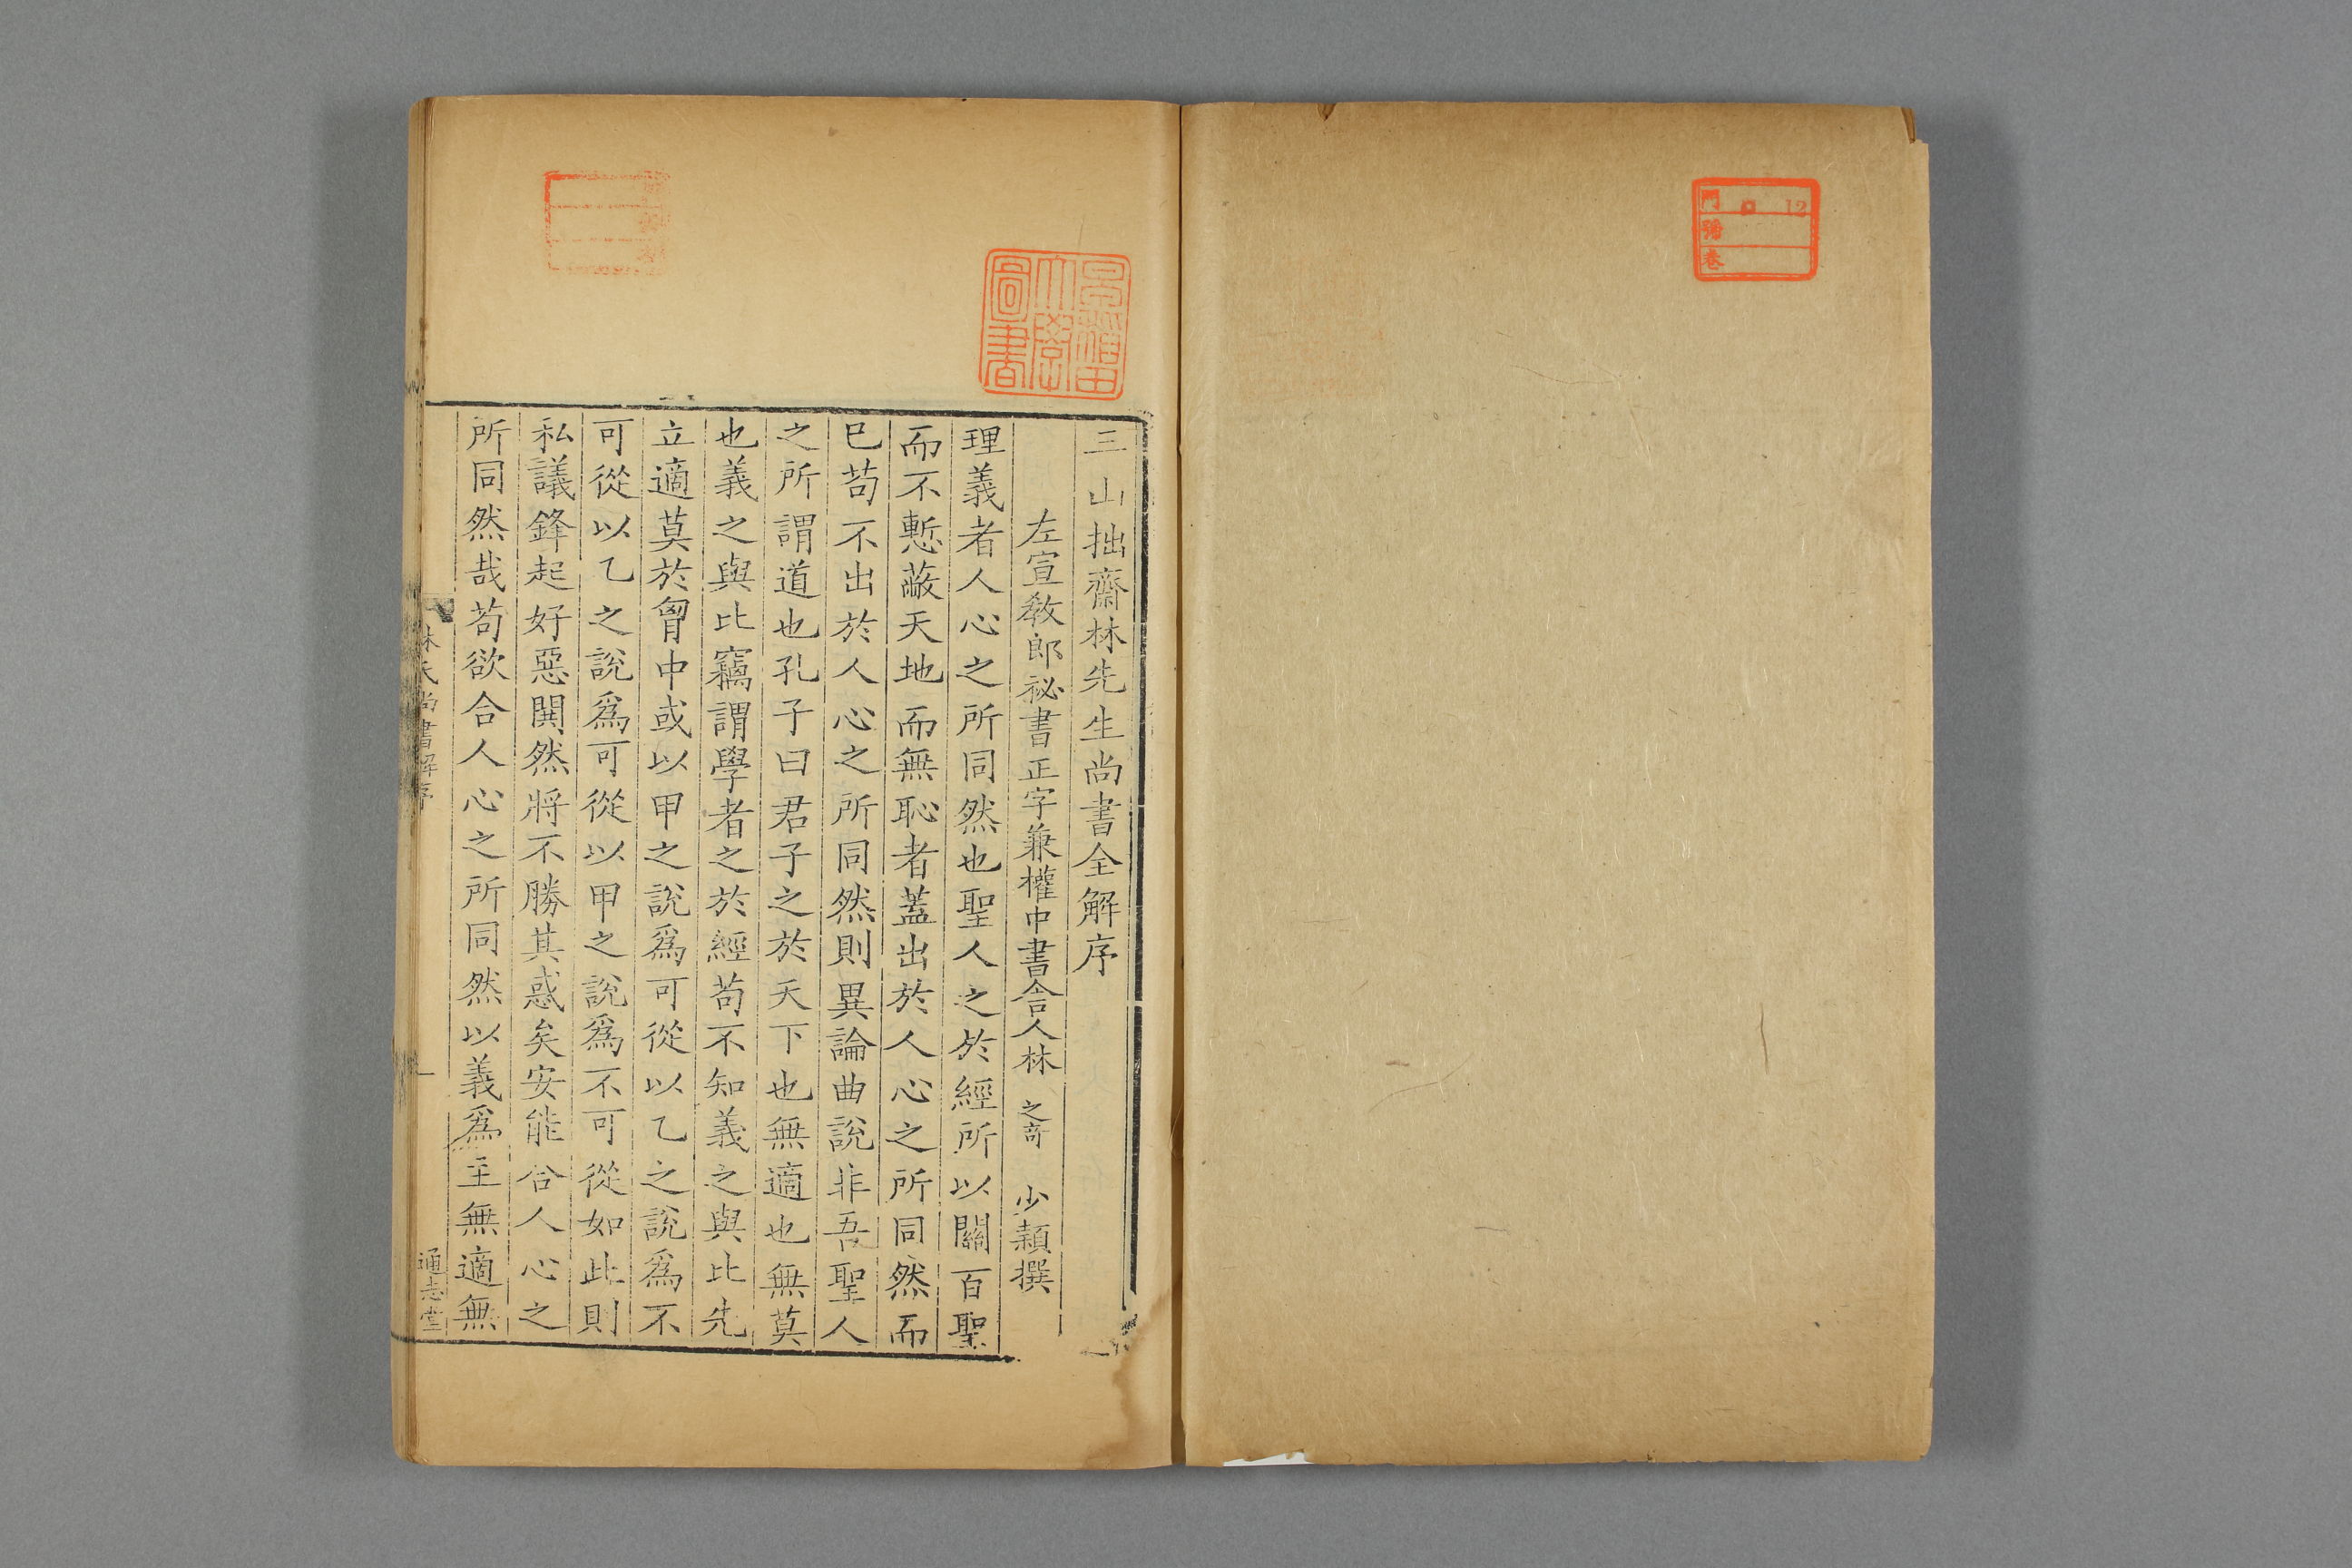 門 ロ 12
號
卷
早稲田大學圖書
三山拙齋林先生尚書全解序
左宣敎郎祕書正字兼權中書舍人林之奇 少穎撰
理義者人心之所同然也聖人之於經所以關百聖
而不慙蔽天地而無恥者蓋出於人心之所同然而
已苟不出於人心之所同然則異論曲說非吾聖人
之所謂道也孔子曰君子之於天下也無適也無莫
也義之與比竊謂學者之於經苟不知義之與比先
立適莫於胷中或以甲之說爲可從以乙之說爲不
可從以乙之說爲可從以甲之說爲不可從如此則
私議鋒起好惡鬨然將不勝其惑矣安能合人心之
所同然哉苟欲合人心之所同然以義爲主無適無
林氏尚書解序 一 通志堂